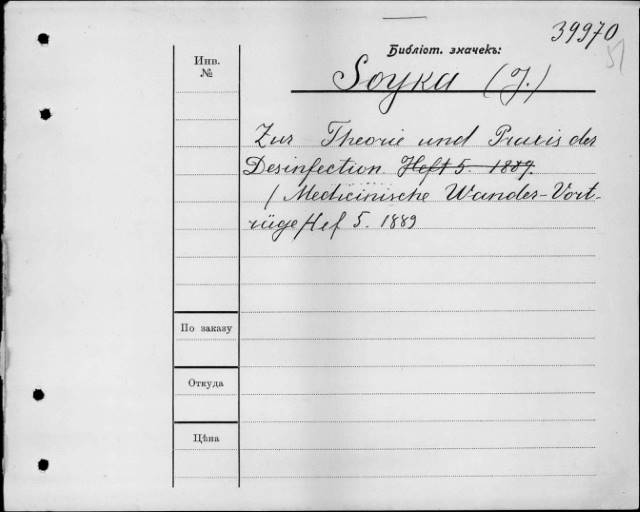 39970
51
Библіот. значекъ:
Инв.
№
Soyka (J.)
Zur Theorie und Praxis der
Desinfection. Heft 5. 1889.
(Medicinische Wander-Vort-
räge Hef 5. 1889
По заказу
Откуда
Цѣна